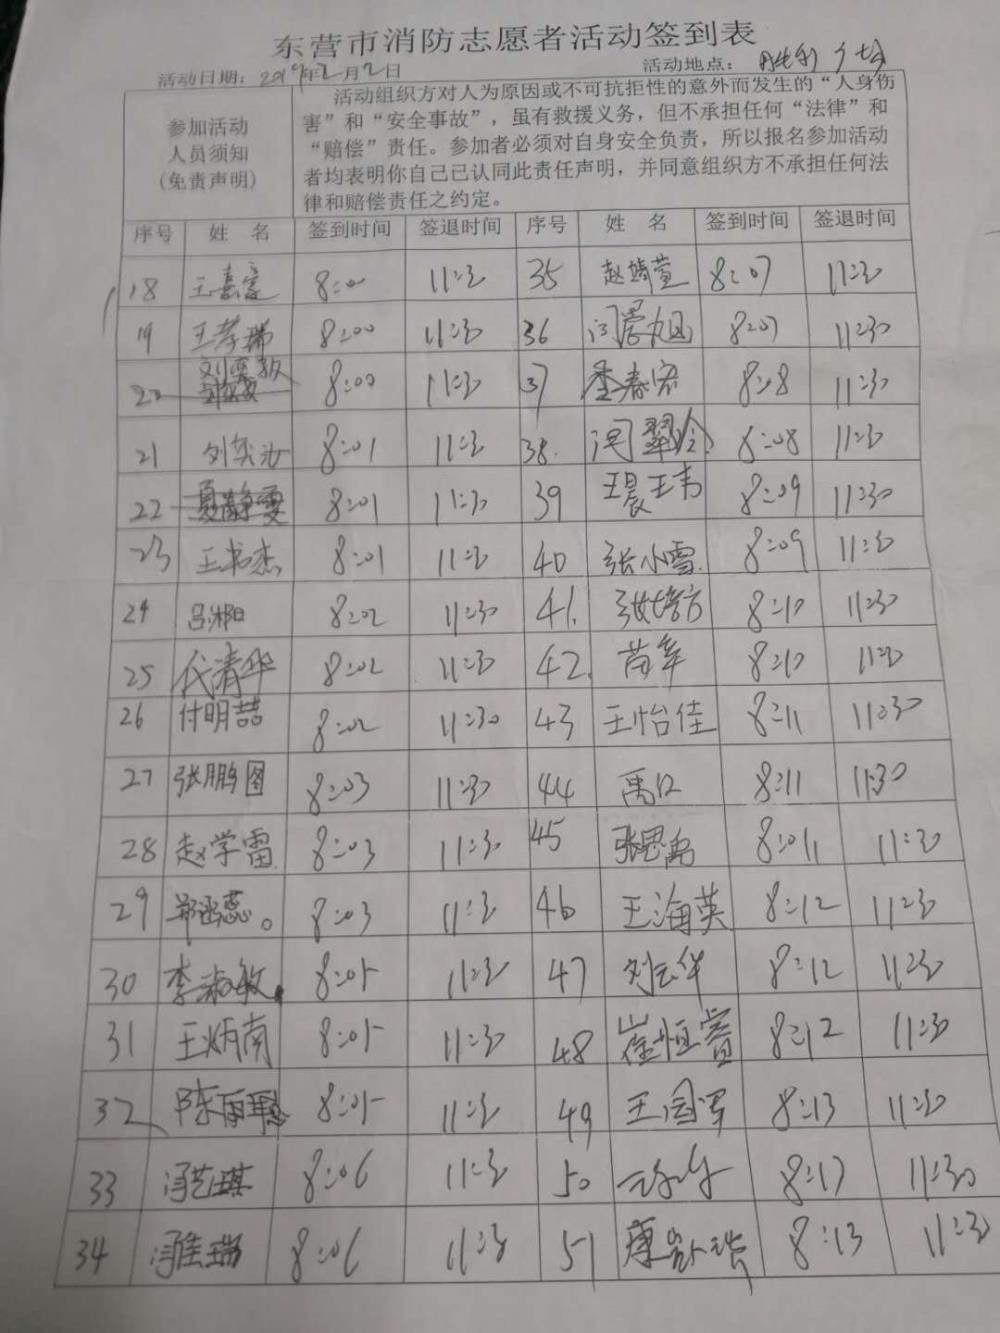 东营市消防志愿者活动签到表
活动日期：2019年2月2日 活动地点：胜利广场
参加活动
人员须知
(免责声明)
活动组织方对人为原因或不可抗拒性的意外而发生的“人身伤
害”和“安全事故”，虽有救援义务，但不承担任何“法律”和
“赔偿”责任。参加者必须对自身安全负责，所以报名参加活动
者均表明你自己已认同此责任声明，并同意组织方不承担任何法
律和赔偿责任之约定。
序号 姓 名 签到时间 签退时间 序号 姓 名 签到时间 签退时间
18 王嘉豪 8:00 11:30 35 赵靖萱 8:07 11:30
19 王孝瑞 8:00 11:30 36 8:07 11:30
20 8:00 11:30 37 8:8 11:30
21 刘奕汝 8:01 11:30 38. 闫翠玲 8:08 11:30
22 夏静雯 8:01 11:30 39 王晨王韦 8:09 11:30
23 王书杰 8:01 11:30 40 张小雪 8:09 11:30
24 吕湘 8:02 11:30 41. 8:10 11:30
25 代清华 8:02 11:30 42. 苗军 8:10 11:30
26 付明喆 8:02 11:30 43 王怡佳 8:11 11:30
27 张鹏图 8:03 11:30 44 8:11 11:30
28 赵学雷 8:03 11:30 45 张思禹 8:011 11:30
29 郑涵蕊。 8:03 11:30 46 王海英 8:12 11:30
30 李淑敏 8:05 11:30 47 刘云华 8:12 11:30
31 王炳南 8:05 11:30 48 崔恒睿 8:12 11:30
32 8:05 11:30 49 王国军 8:13 11:30
33 冯艺琪 8:06 11:30 50 8:13 11:30
34 8:06 11:30 51 康 8:13 11:30